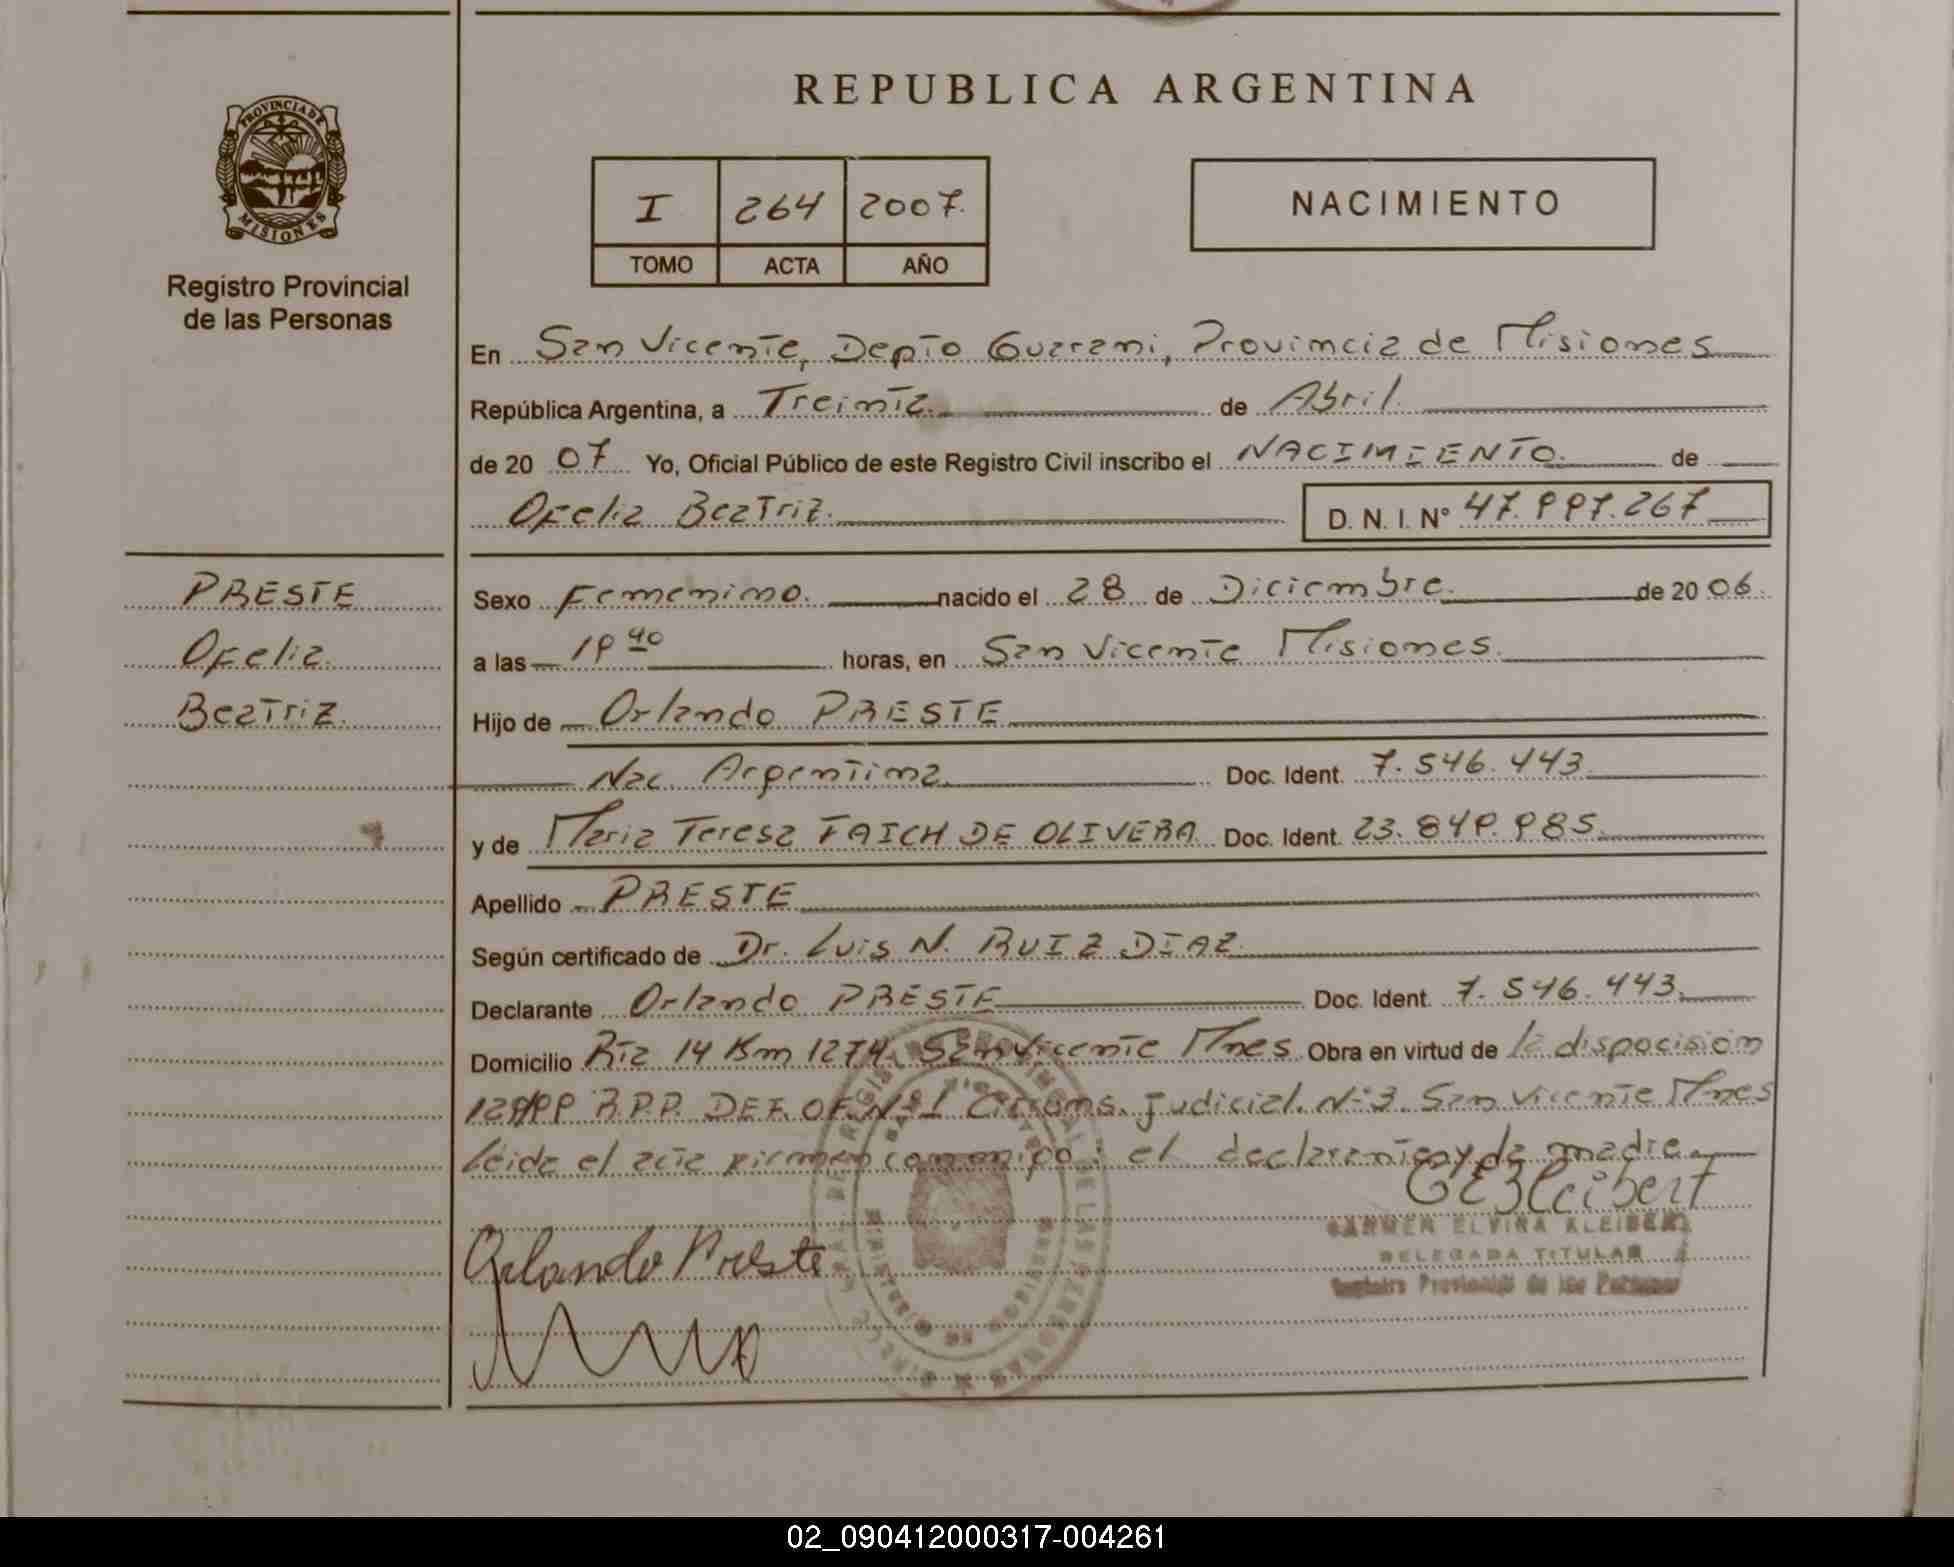 REPUBLICA ARGENTINA
PROVINCIA DE
MISIONES
Registro Provincial
de las Personas
I 264 2007.
TOMO ACTA AÑO
NACIMIENTO
En San Vicente, Depto Guarani, Provincia de Misiones
República Argentina, a Treinta. de Abril.
de 20 07 Yo, Oficial Público de este Registro Civil inscribo el NACIMIENTO. de
Ofelia Beatriz. D. N. I. N° 47.997.267
PRESTE
Ofelia
Beatriz.
Sexo Femenino. nacido el 28 de Diciembre. de 20 06.
a las 19 40 horas, en San Vicente Misiones.
Hijo de Orlando PRESTE
Nac. Argentina. Doc. Ident. 7.546.443.
y de Maria Teresa FAICH DE OLIVERA. Doc. Ident. 23.849.985.
Apellido PRESTE
Según certificado de Dr. Luis N. RUIZ DIAZ.
Declarante Orlando PRESTE Doc. Ident. 7.546.443.
Domicilio Rta 14 Km 1274. San Vicente Mnes. Obra en virtud de la dispocisión
R.P.P. DEF. OF. N° 1 Circuns. judicial. N° 3. San Vicente Mnes
Leida el acta firman conmigo: el declarante y la madre.
CARMEN ELVIRA KLEIBERT
DELEGADA TITULAR
Registro Provincial de las Personas
Orlando Preste
02_090412000317-004261